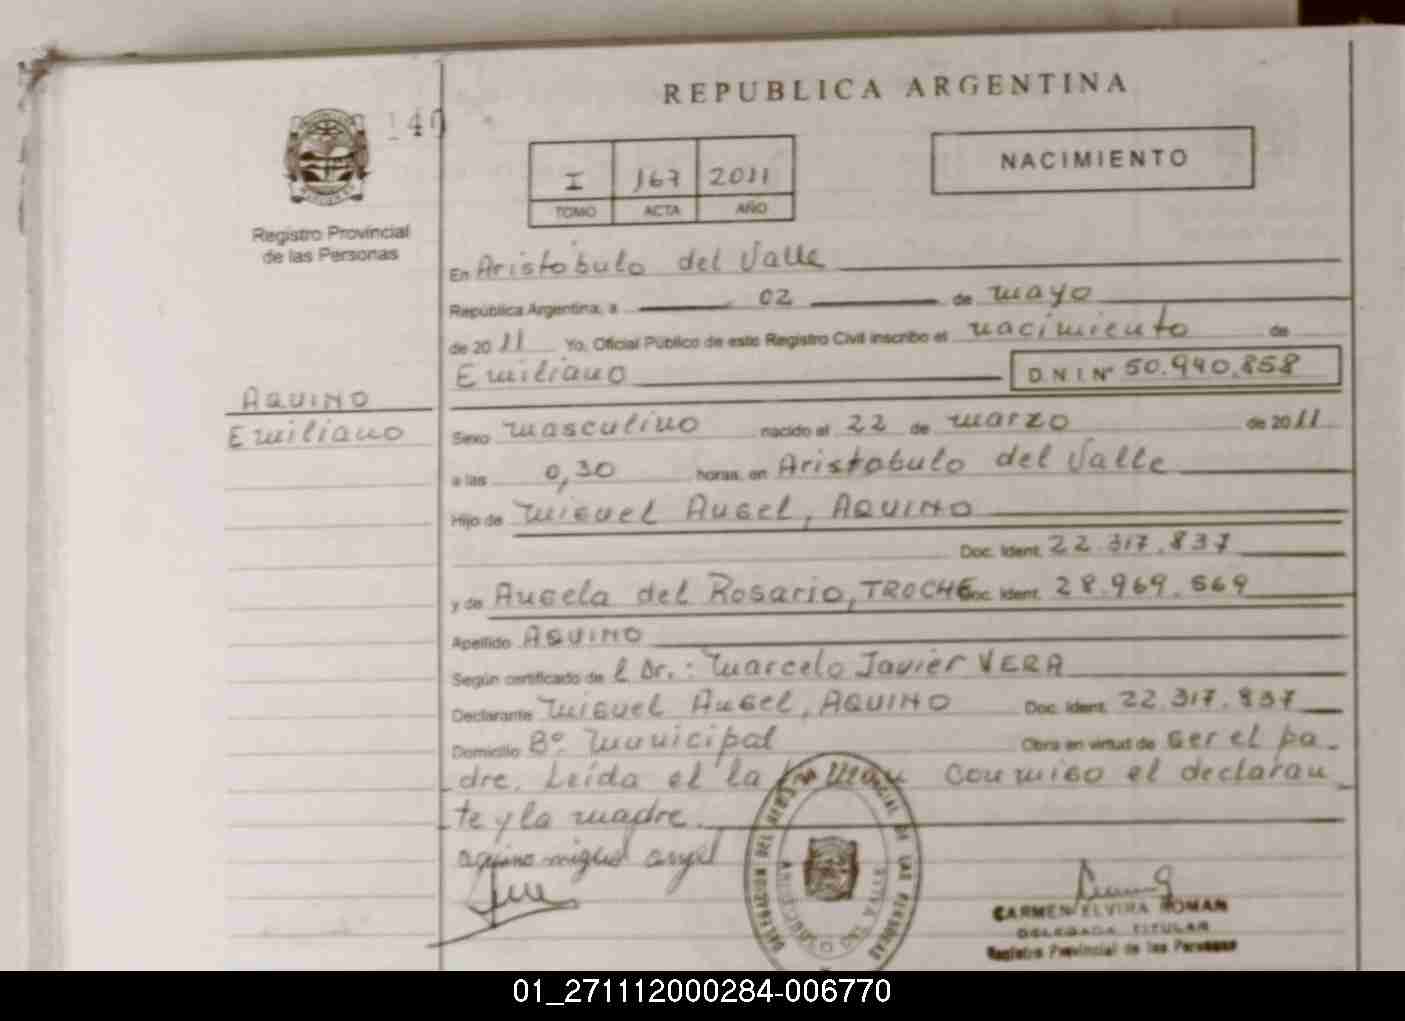 REPUBLICA ARGENTINA
140
NACIMIENTO
I 167 2011
TOMO ACTA AÑO
Registro Provincial
de las Personas
En Aristóbulo del Valle
República Argentina, a 02 de mayo
de 2011 Yo, Oficial Público de este Registro Civil inscribo el nacimiento de
Emiliano D.N.I. Nº 50.940.858
AQUINO
Emiliano
Sexo masculino nacido el 22 de marzo de 2011
a las 0,30 horas, en Aristobulo del Valle
Hijo de Miguel Angel, AQUINO
Doc. Ident. 22.317.837
y de Angela del Rosario, TROCHE Doc. Ident. 28.969.569
Apellido AQUINO
Según certificado de l Dr.: Marcelo Javier VERA
Declarante Miguel Angel, AQUINO Doc. Ident. 22.317.837
Domicilio Bº. Municipal Obra en virtud de ser el pa-
dre. Leída el la conmigo el declaran
te y la madre.
aquino miguel angel
DELEGACION DEL REGISTRO PROVINCIAL DE LAS PERSONAS
ARISTOBULO DEL VALLE
CARMEN ELVIRA ROMAN
DELEGADA TITULAR
Registro Provincial de las Personas
01_271112000284-006770